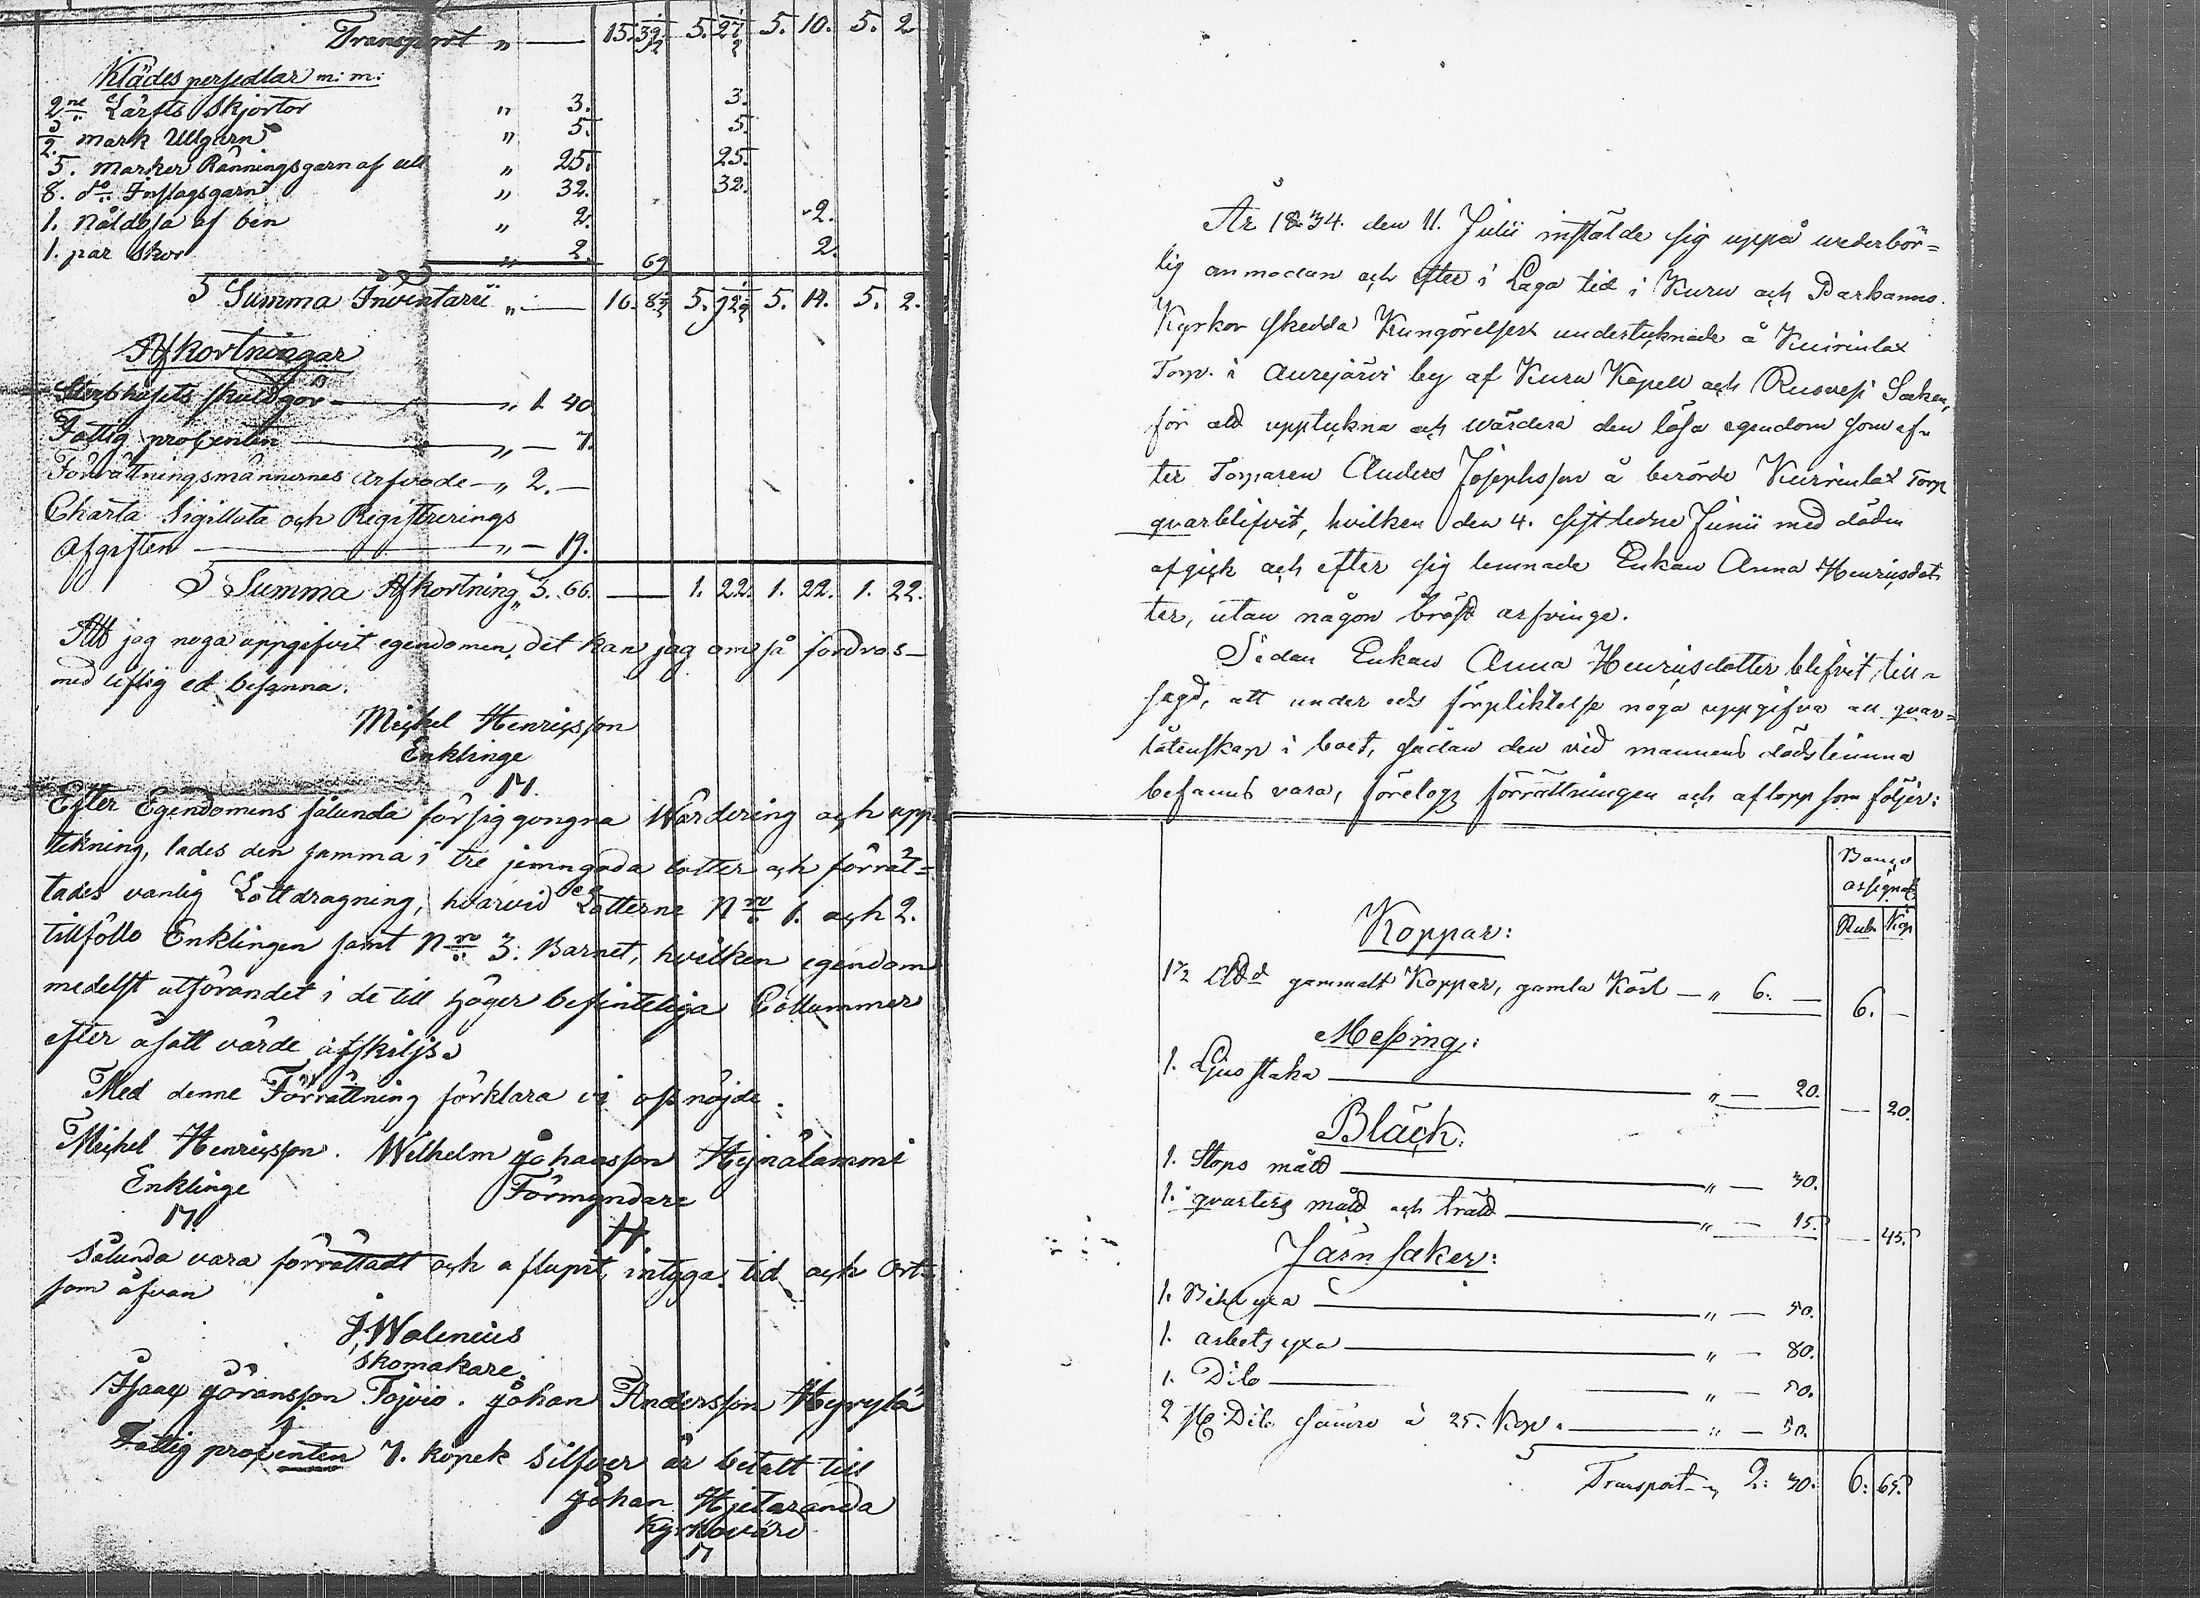 Transport " — 15. 39 1/2 5. 27 1/2 5. 10. 5. 2
Klädes persedlar m: m:
2ne Lärfts Skjortor " 3. 3.
2. mark Ullgarn " 5. 5.
5. marker Ränningsgarn af ull " 25. 25.
8. do Inslagsgarn " 32. 32.
1. Nåldosa af ben " 2. 2.
1. par Skor " 2. 69 2.
Summa Inventarii " — 16. 8 1/2 5. 92 1/2 5. 14. 5. 2.
Afkortningar
Sterbhusets skuld gör — " 1. 40
Fattig prosenten — " — 7.
Förrättningsmännernes Arfvode — " 2. —
Charta Sigillata och Registrerings
Afgiften — " — 19.
Summa Afkortning " 3. 66. — 1. 22. 1. 22. 1. 22.
Att jag noga uppgifvit egendomen, det kan jag om så fordras
med liflig ed besanna.
Michel Henricsson
Enklinge
Efter Egendomens sålunda försiggongna Wärdering och upp
tekning, lades den samma i tre jemngoda lotter och förrät=
tades vanlig Lottdragning, hvarvid Lotterne Nro 1. och 2.
tillföllo Enklingen samt Nro 3. Barnet, hvilken egendom
medelst utförandet i de till höger befinteliga Collummer
efter åsatt värde afskiljs.
Med denne Förrättning förklara vi oss nöjde.
Michel Henricsson. Wilhelm Johansson Heinälammi
Enklinge Förmyndare
Sålunda vara förrättadt och aflupit, intyga tid och Ort
som åfvan
J. Walenius
Skomakare.
Isaac Göransson Tojvio. Johan Andersson Hyrylä
Fattig prosenten 7. kopek Silfver är betalt till
Johan Hietaranda
Kyrkovärd
År 1834. den 11. Julii instälde sig uppå wederbör=
lig anmodan och efter i Laga tid i Kuru och Parkanno
Kyrkor skedda Kungörelser undertecknade å Kuirinlax
Torp i Aurejärvi by af Kuru Kapell och Ruovesi Socken,
för att upptekna och wärdera den lösa egendom som ef=
ter Torparen Anders Josephsson å berörde Kuirinlax Torp
qvarblifvit, hvilken den 4. sistledne Junii med döden
afgick och efter sig lemnade Enkan Anna Henricsdot
ter, utan någon bröst arfvinge.
Sedan Enkan Anna Henricsdotter blifvit till=
sagd, att under eds förpliktelse noga uppgifva all qvar=
låtenskap i boet, sådan den vid mannens dödstimma
befanns vara, företogs förrättningen och aflopp som följer:
Banco
assignat
Rub. Kop
Koppar:
1 1/2 gammalt Koppar, gamla Käril — " 6. — 6. —
Messing:
1. Ljusstaka — " — 20. — 20.
Bläck:
1. Stops mått — " — 30.
1. qvarters mått och tratt — " — 15. — 45.
Järn saker:
1. Bilyxa — " — 50.
1. arbets yxa — " — 80.
1. Dito — " — 50.
2 st: Dito sämre à 25. Kop. — " — 50.
Transport — " 2: 30: 6: 65.